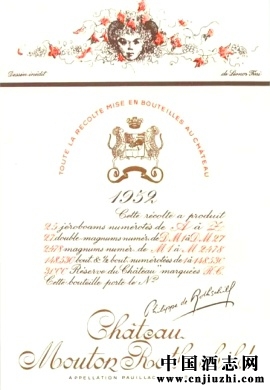 Dessin inédit
de Léonor Fini
TOUTE LA RÉCOLTE MISE EN BOUTEILLES AU CHÂTEAU
1952
Cette récolte a produit
25 jéroboams numérotés de A à Z
27 double-magnums numér. de D.M.1 à D.M. 27
magnums numér. de M 1 à M
bout. & ½ bout. numérotées de 1 à
"Réserve du Château" marquées R.C.
Cette bouteille porte le No
Philippe de Rothschild
Château
Mouton Rothschild
APPELLATION PAUILLAC
中国酒志网
www.cnjiuzhi.com